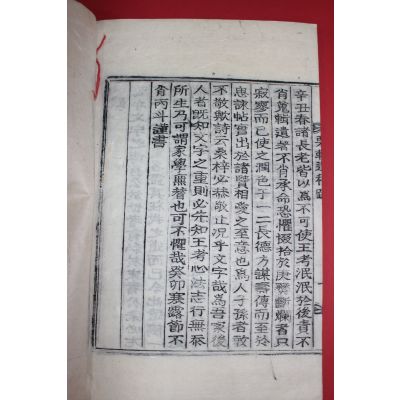 辛丑春諸長老皆以爲不可使王考泯泯於後責不
肖蒐輯遺著不肖承命恐懼掇拾於斷爛者只
寂寥而已使之潤色于一二長德方謀壽傳而至於
思諫帖實出於諸賢相愛之至意也爲人子孫者敢
不敬歟詩云桑梓必恭敬止况乎文字哉爲吾家後
人者旣知文字之重則必先知王考心法志行無忝
所生乃可謂家學無替也可不懼哉癸卯寒露節不
肖丙斗謹書